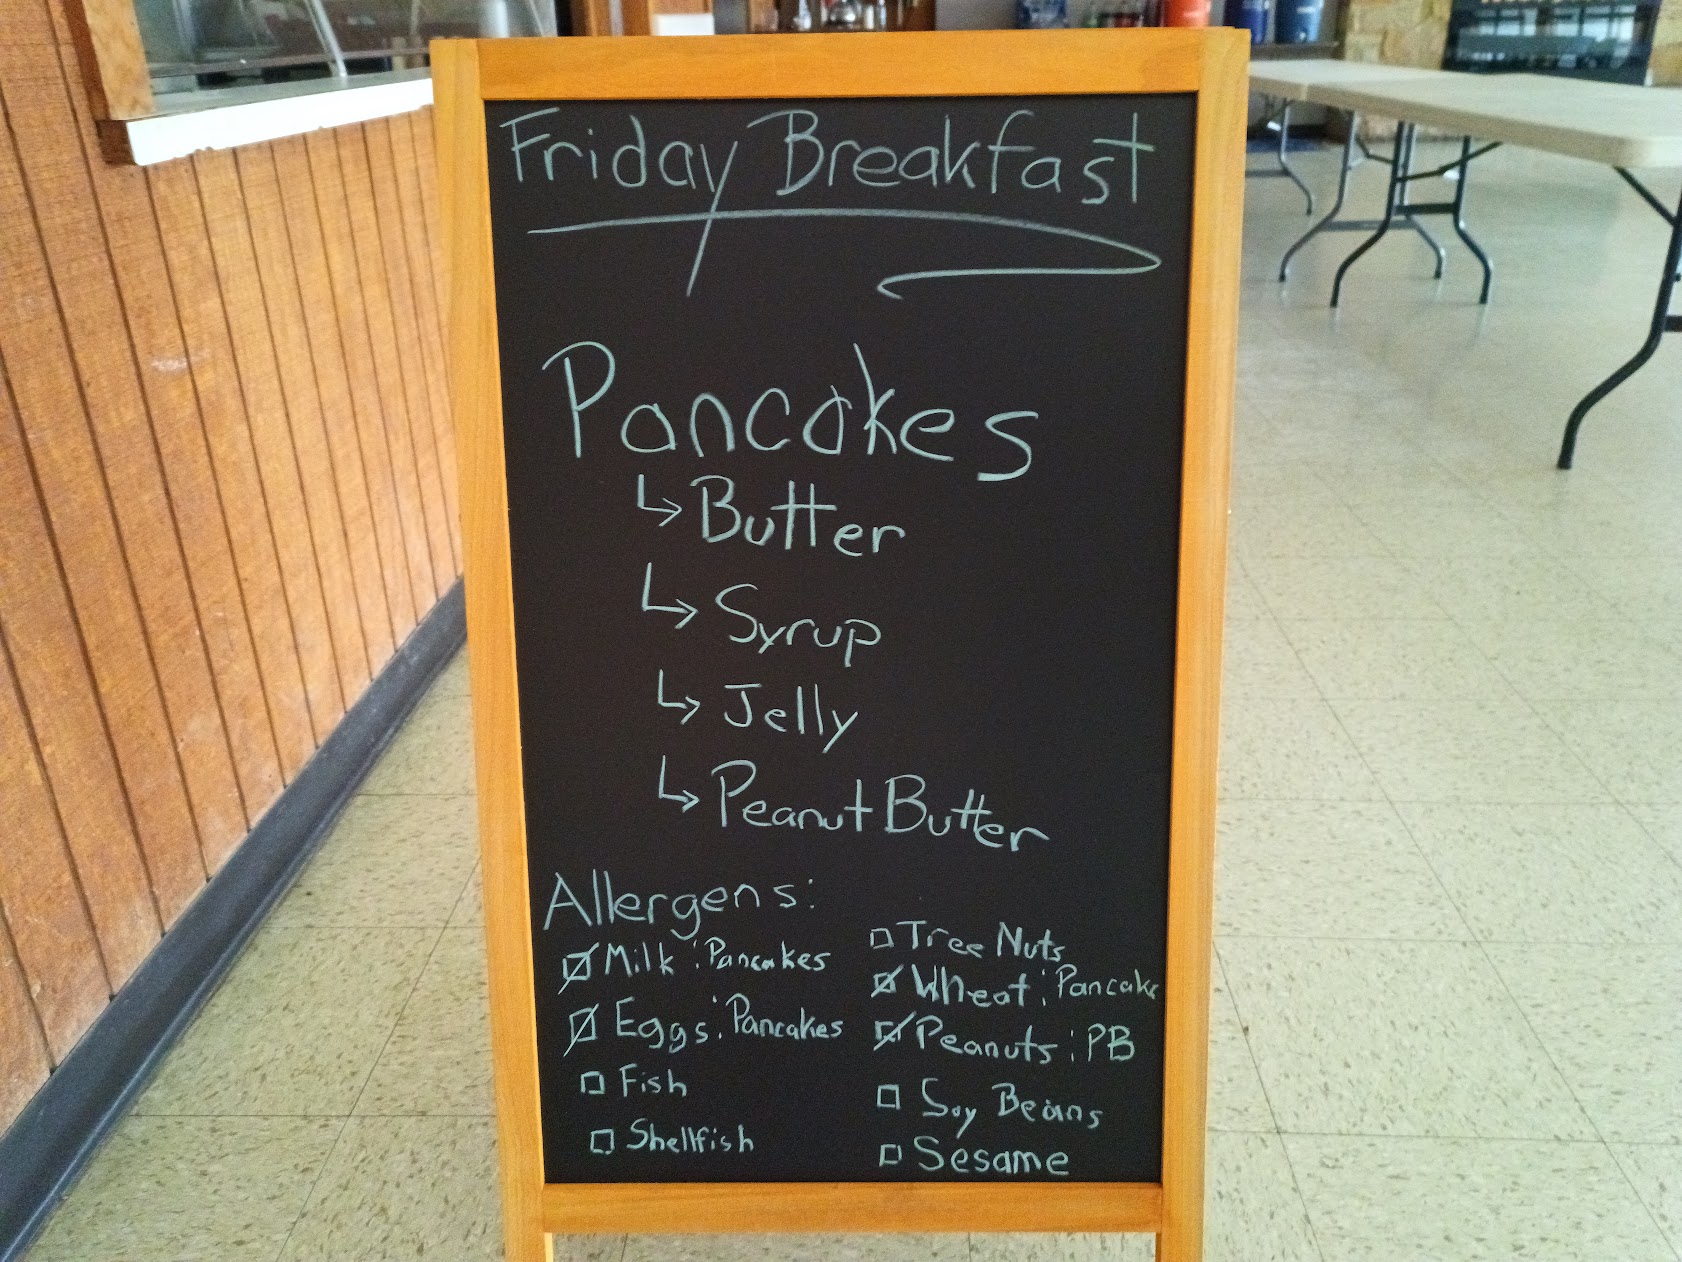 Friday Breakfast
Pancakes
↳ Butter
↳ Syrup
↳ Jelly
↳ Peanut Butter
Allergens:
☑ Milk: Pancakes
☑ Eggs: Pancakes
☐ Fish
☐ Shellfish
☐ Tree Nuts
☑ Wheat: Pancake
☑ Peanuts: PB
☐ Soy Beans
☐ Sesame